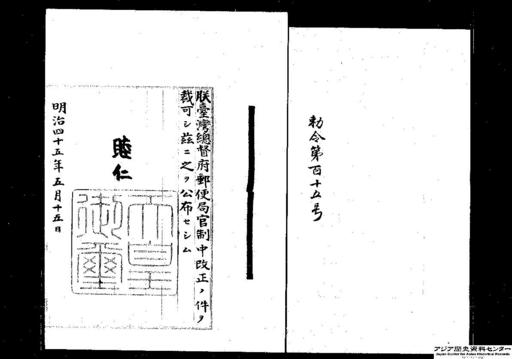 勅令第百十五号
朕臺灣總督府郵便局官制中改正ノ件ヲ
裁可シ茲ニ之ヲ公布セシム
睦仁
天皇御璽
明治四十五年五月十五日
アジア歴史資料センター
Japan Center for Asian Historical Records